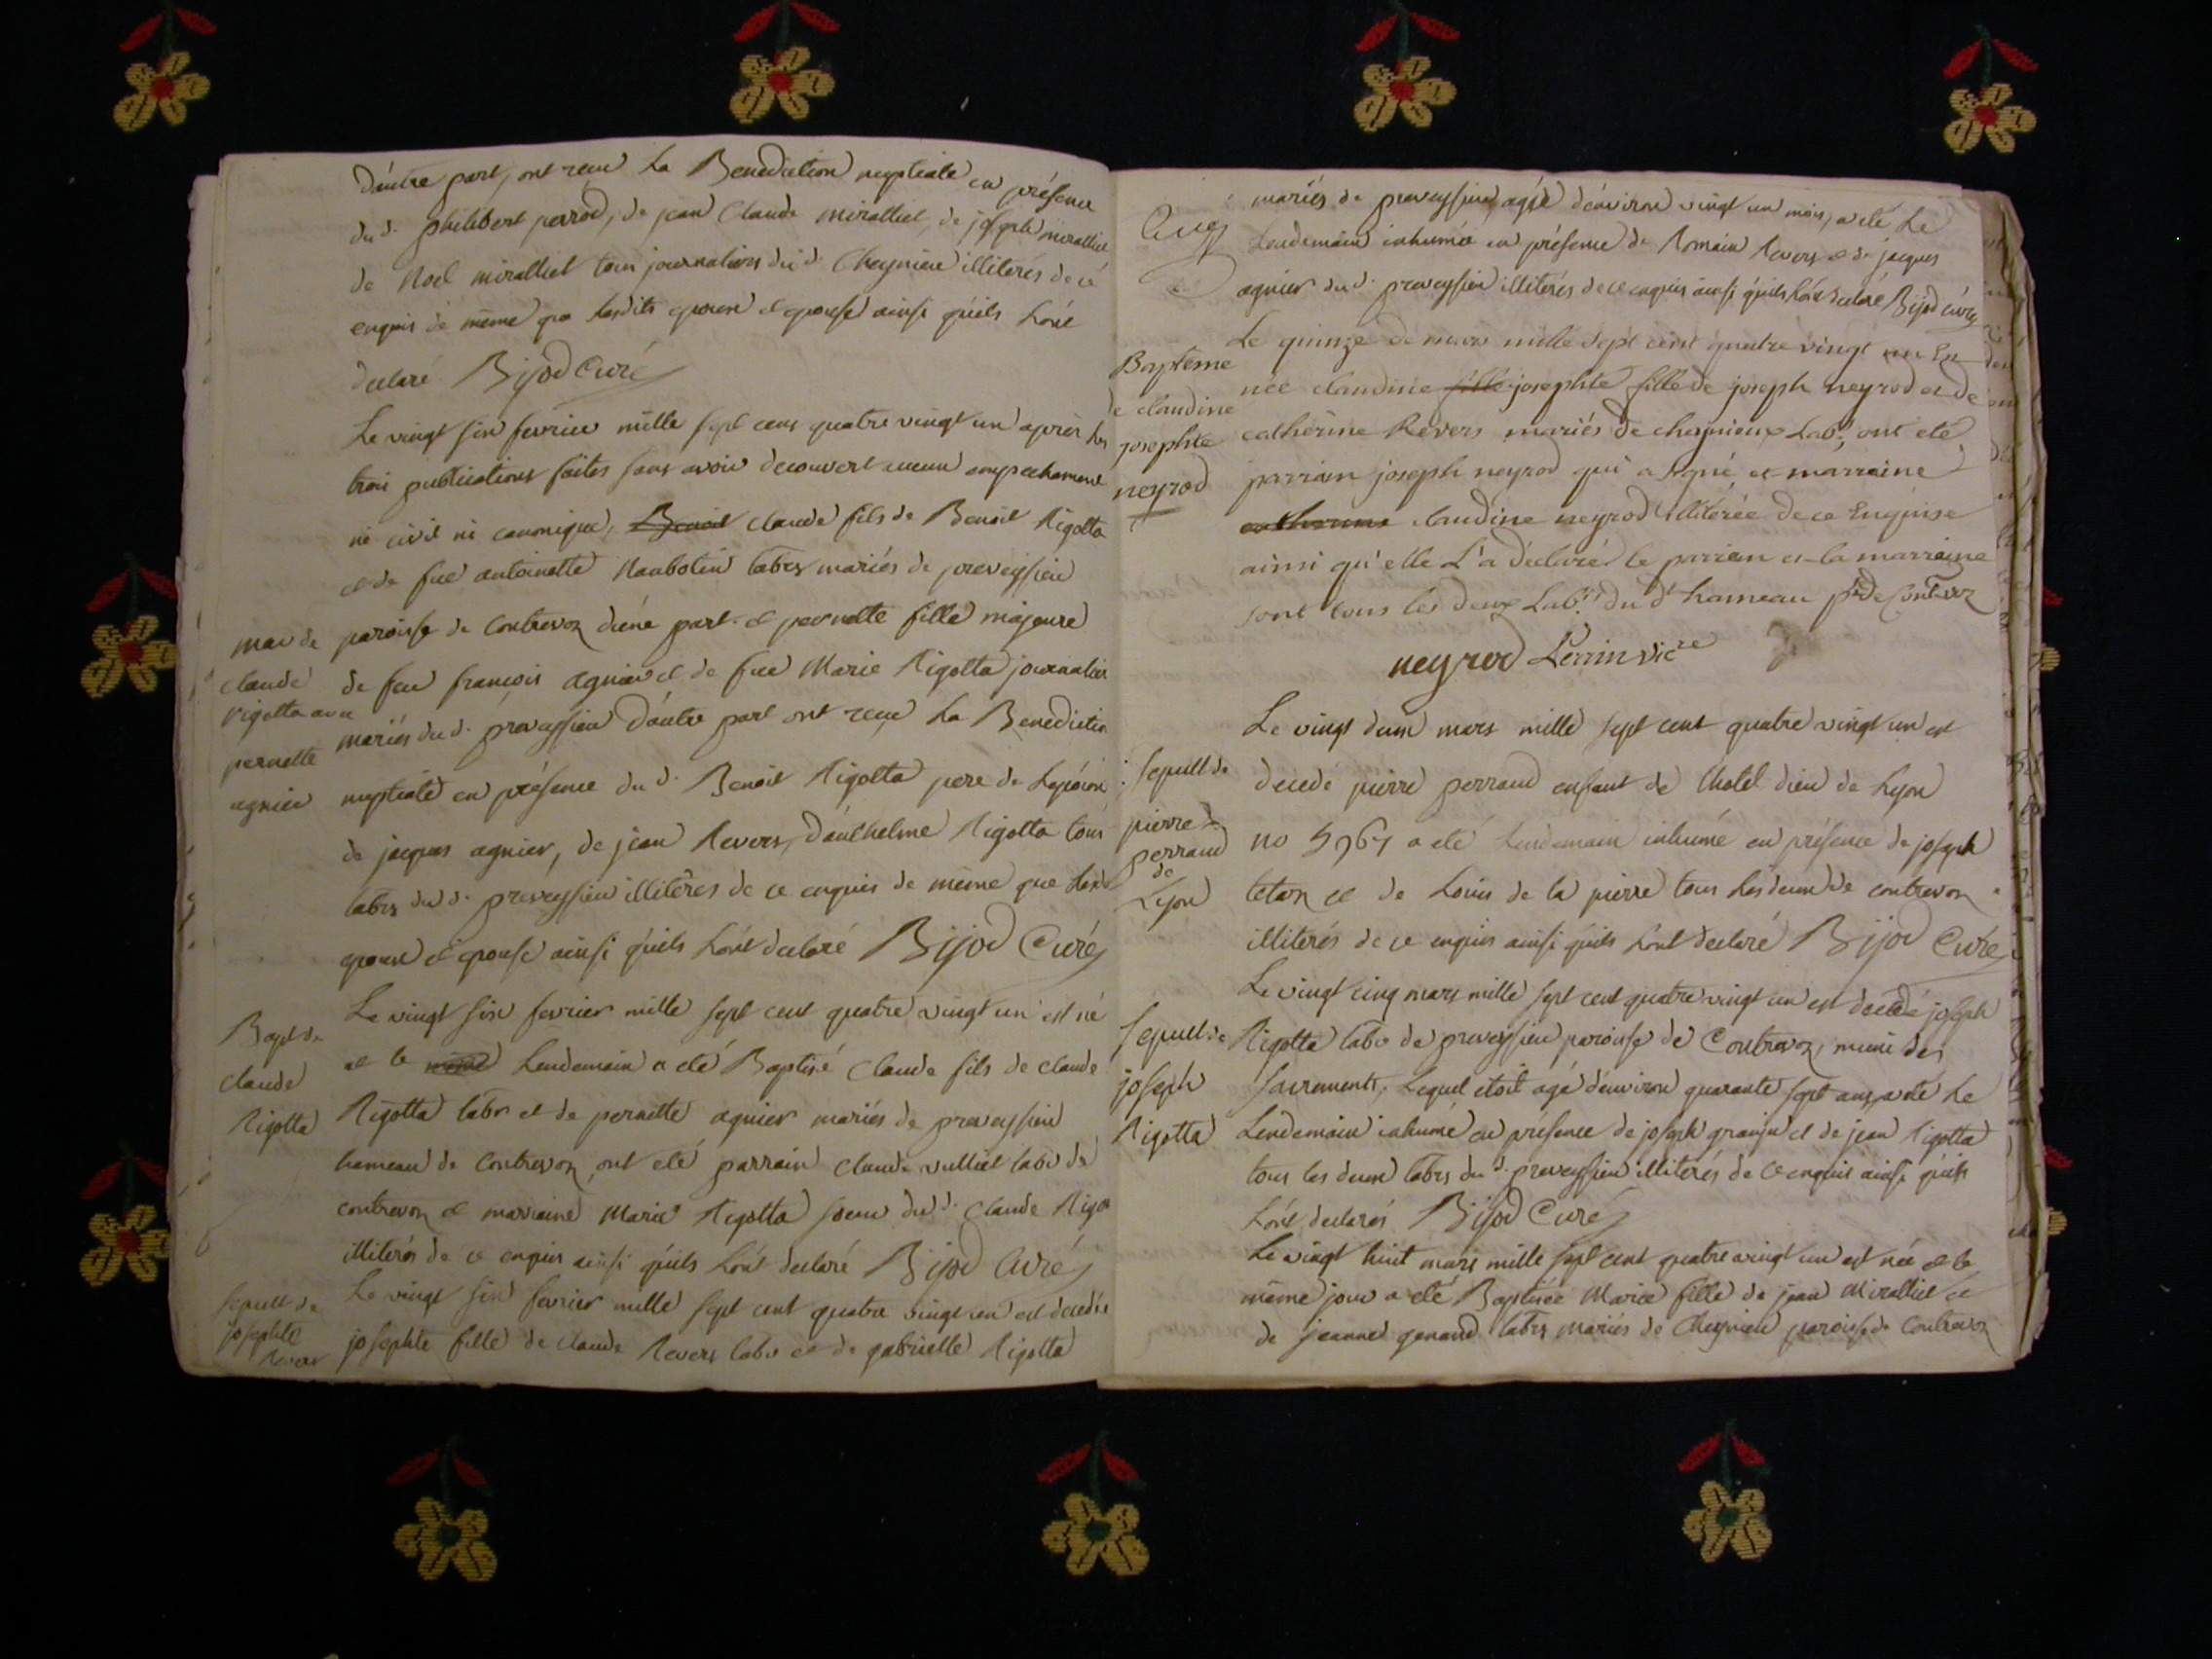 D'autre part, ont recu la Benediction nuptiale en présence
du d. philibert perrod, de jean Claude miralliet, de joseph miralliet
de Noel miralliet tous journaliers du d. Cheynieu illiterés de ce
enquis de même que lesdits epoux et epouse ainsi qu'ils l'ont
declaré Bijod Curé
Le vingt six fevrier mille sept cens quatre vingt un après les
trois publications faites sans avoir decouvert aucun empechement
ni civil ni canonique, Benoit claude fils de Benoit Rigotta
et de fue antoinette labrs mariés de preveyssieu
mar de
claude
rigotta avec
pernette
agnier
paroisse de Contrevoz d'une part et pernette fille majeure
de feu françois agnier et de fue Marie Rigotta journaliers
mariés du d. preveyssieu D'autre part ont recu la Benediction
nuptiale en présence du d. Benoit Rigotta pere de l'epoux
de jacques agnier, de jean Revers, d'anthelme Rigotta tous
labrs du d. preveyssieu illiterés de ce enquis de même que lesd
epoux et epouse ainsi qu'ils l'ont declaré Bijod Curé
Bapt de
claude
Rigotta
Le vingt six fevrier mille sept cent quatre vingt un est né
et le même lendemain a eté Baptisé Claude fils de claude
Rigotta labr et de pernette agnier mariés de preveyssieu
hameau de Contrevoz, ont eté parrain claude vulliet labr de
contrevoz et marraine Marie Rigotta soeur du d. claude Rigo
illiterés de ce enquis ainsi qu'ils l'ont declaré Bijod Curé
Sepult de
josephte
Revers
Le vingt six fevrier mille sept cent quatre vingt un est decedée
josephte fille de claude Revers labr et de gabrielle Rigotta
mariés de preveyssieu agée d'environ vingt un mois, a eté le
lendemain inhumée en présence de Romain Revers et de jacques
agnier du d. preveyssieu illiterés de ce enquis ainsi qu'ils l'ont declaré Bijod curé
Baptême
de claudine
josephte
neyrod
Le quinze de mars mille sept cent quatre vingt un Est
née claudine fille josephte fille de joseph neyrod et de
catherine Revers mariés de cheynieux Labr, ont eté
parrain joseph neyrod qui a signé, et marraine
catherine claudine neyrod illiterée de ce Enquise
ainsi qu'elle L'a déclaré le parrain et la marraine
sont tous les deux Labrs du dt hameau psse de Contrevoz
neyrod Perrin vicre
Sepult de
pierre
perraud
de
Lyon
Le vingt deux mars mille sept cent quatre vingt un est
decedé pierre perraud enfant de l'hotel dieu de Lyon
no a eté lendemain inhumé en présence de joseph
tetaz et de Louis de la pierre tous les deux de contrevoz
illiterés de ce enquis ainsi qu'ils l'ont declaré Bijod Curé
Sepult de
joseph
Rigotta
Le vingt cinq mars mille sept cent quatre vingt un est decedé joseph
Rigotta labr de preveyssieu paroisse de Contrevoz, muni des
sacrements, lequel étoit agé d'environ quarante sept ans, a eté le
Lendemain inhumé en presence de joseph et de jean Rigotta
tous les deux labrs du d. preveyssieu illiterés de ce enquis ainsi qu'ils
l'ont declarés Bijod Curé
Le vingt huit mars mille sept cent quatre vingt un est née et le
même jour a eté Baptisée Marie fille de jean Miralliet et
de jeanne genand labrs mariés de Cheynieu paroisse de Contrevoz